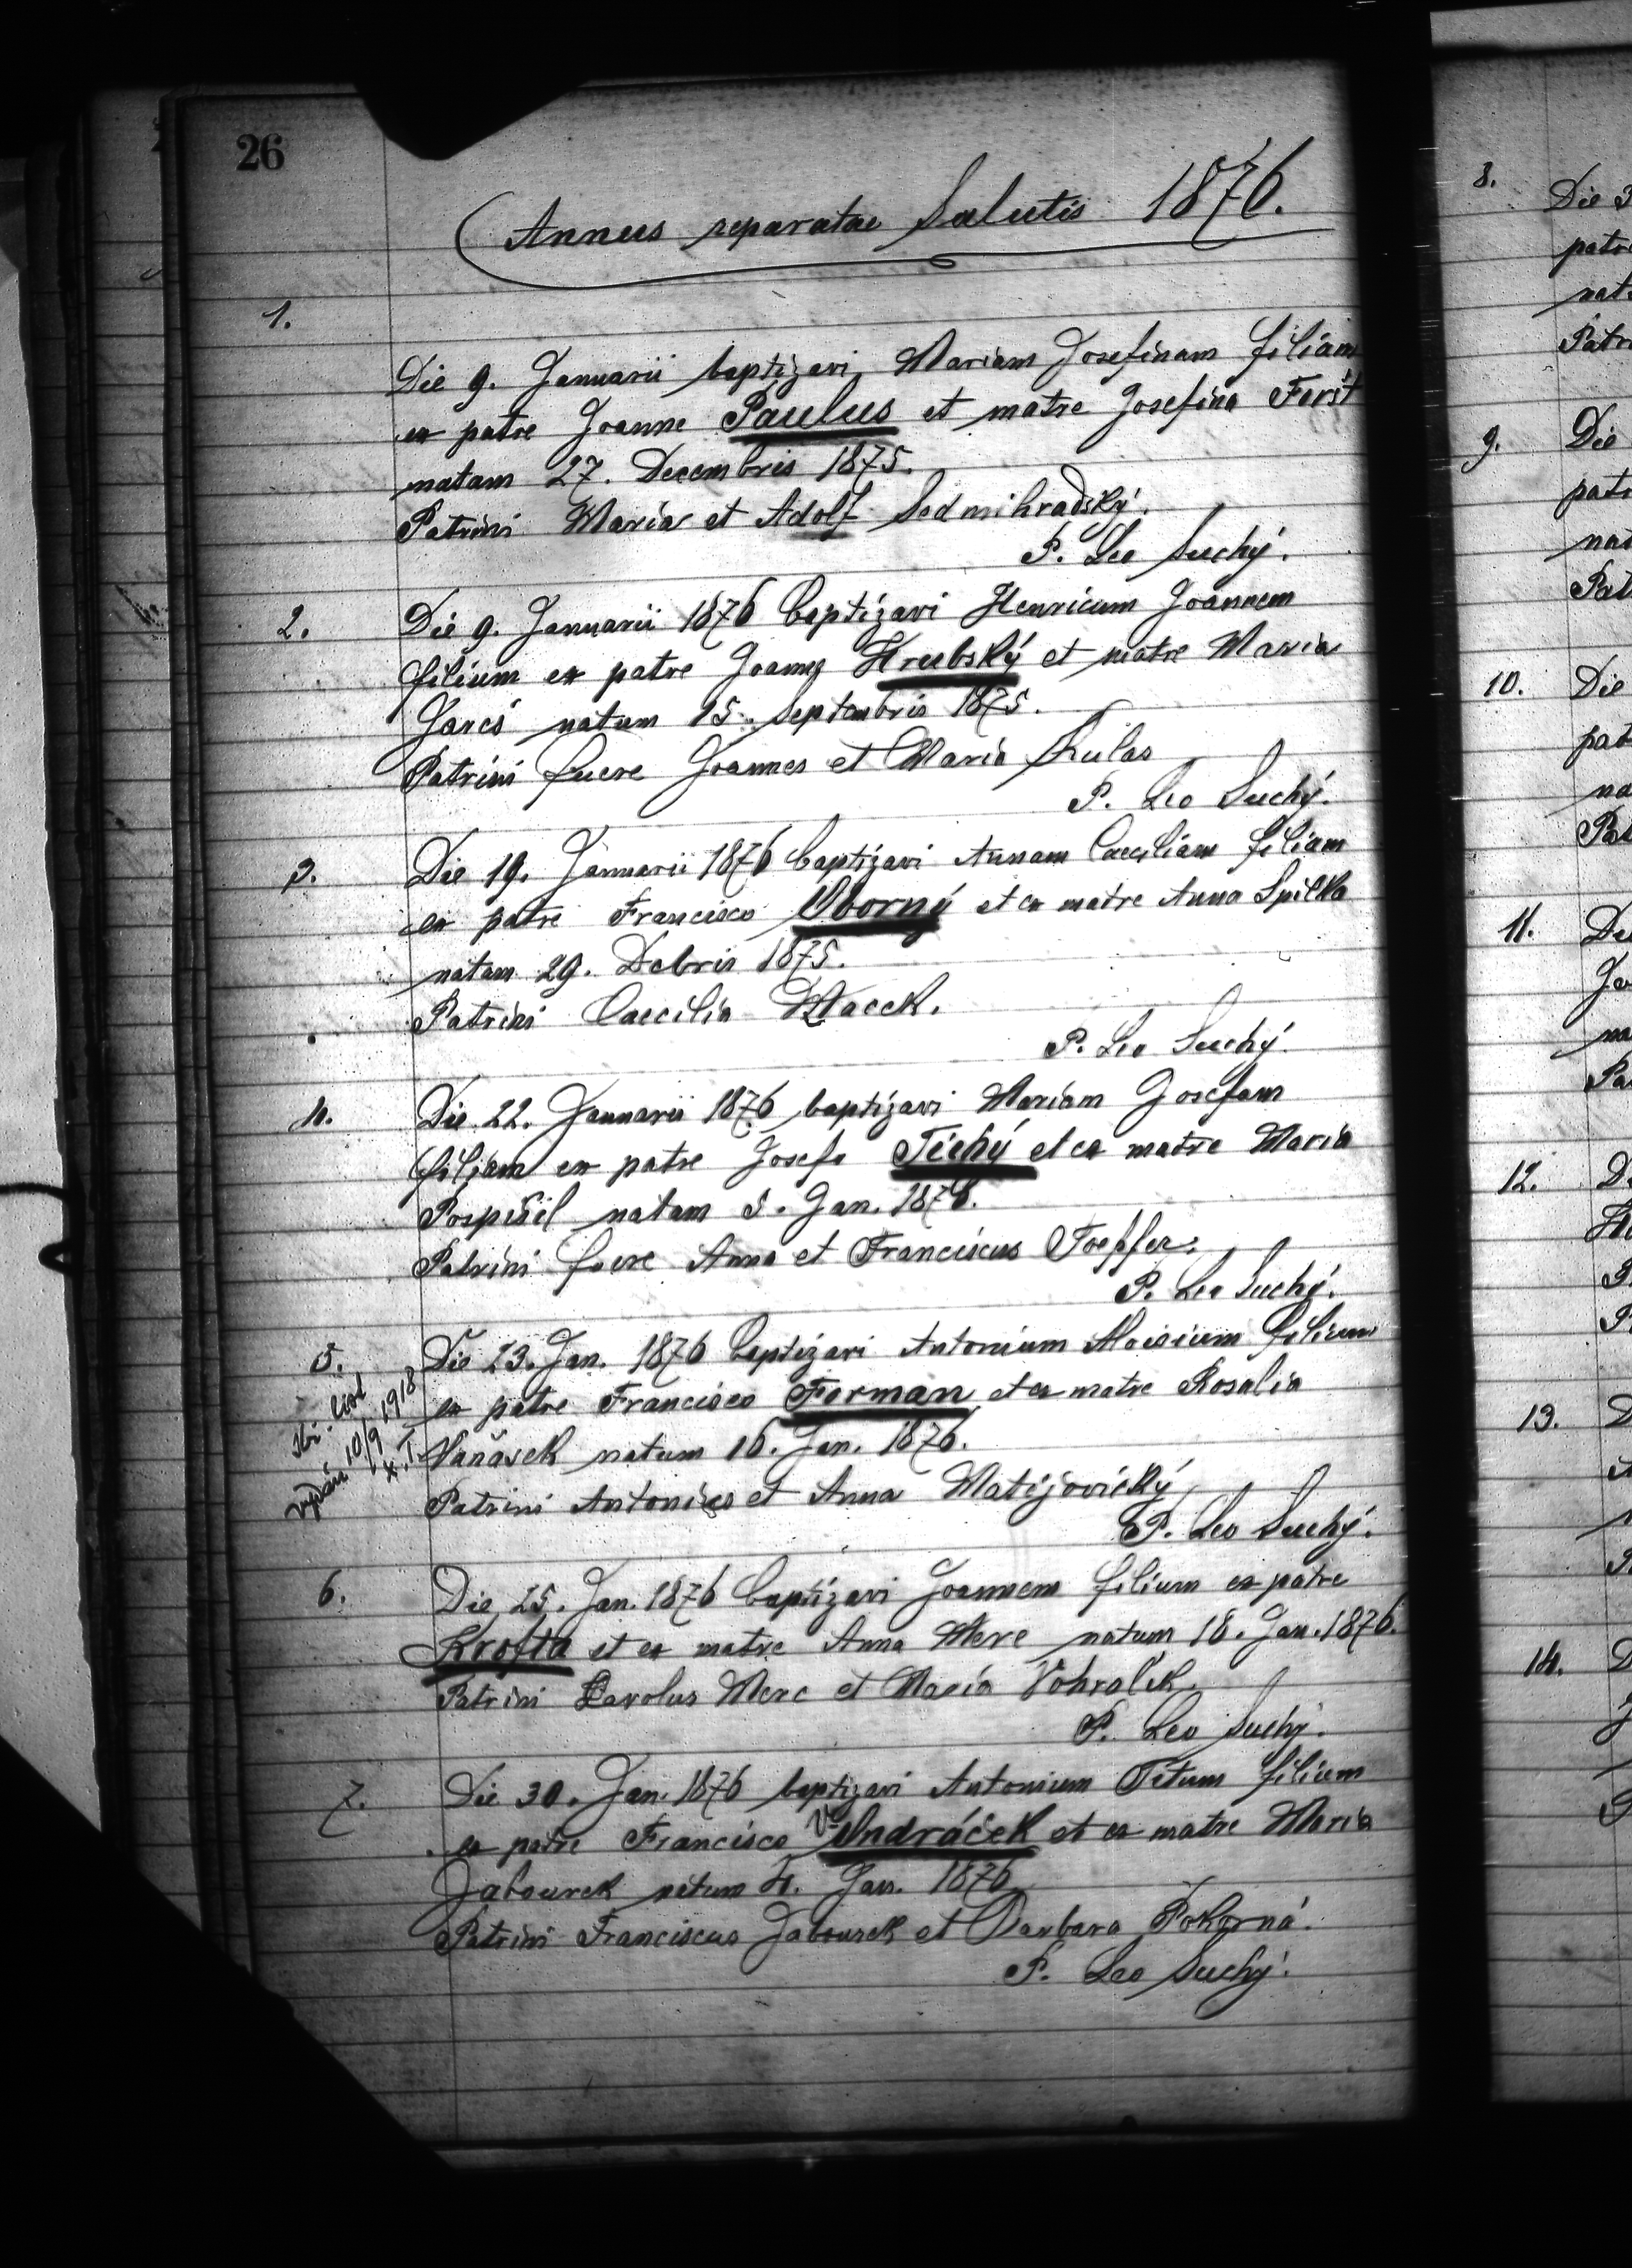 26
Annus reparatae Salutis 1876.
1.
Die 9. Januarii baptizavi Mariam Josefinam filiam
ex patre Joanne Paulus et matre Josefina Foršt
natam 27. Decembris 1875.
Patrini Maria et Adolf Sedmihradský.
P. Leo Suchý.
2. Die 9. Januarii 1876 baptizavi Henricum Joannem
filium ex patre Joanne Hrubský et matre Maria
Jareš natum 15. Septembris 1875.
Patrini fuere Joannes et Maria Kulas
P. Leo Suchý.
3. Die 19. Januarii 1876 baptizavi Annam Caeciliam filiam
ex patre Francisco Oborný et ex matre Anna Spilka
natam 29. Dcbris 1875.
Patrini Caecilia Macek.
P. Leo Suchý.
4. Die 22. Januarii 1876 baptizavi Mariam Josefam
filiam ex patre Josefo Tichý et ex matre Maria
Pospíšil natam 5. Jan. 1876.
Patrini fuere Anna et Franciscus Toepfer.
P. Leo Suchý.
5. Die 23. Jan. 1876 baptizavi Antonium Aloisium filium
ex patre Francisco Forman et ex matre Rosalia
Vaňásek natum 16. Jan. 1876.
Patrini Antonius et Anna Matějovický
P. Leo Suchý.
list
vydán 10/9 1918
6. Die 25. Jan. 1876 baptizavi Joannem filium ex patre
Krofta et ex matre Anna Merc natum 18. Jan. 1876.
Patrini Carolus Merc et Maria Vohralik.
P. Leo Suchý.
7. Die 30. Jan. 1876 baptizavi Antonium Titum filium
ex patre Francisco Vondráček et ex matre Maria
Jabourek natum 4. Jan. 1876
Patrini Franciscus Jabourek et Barbara Pokorná.
P. Leo Suchý.
8.
Die
9.
Die
10.
Die
11.
12.
13.
14.